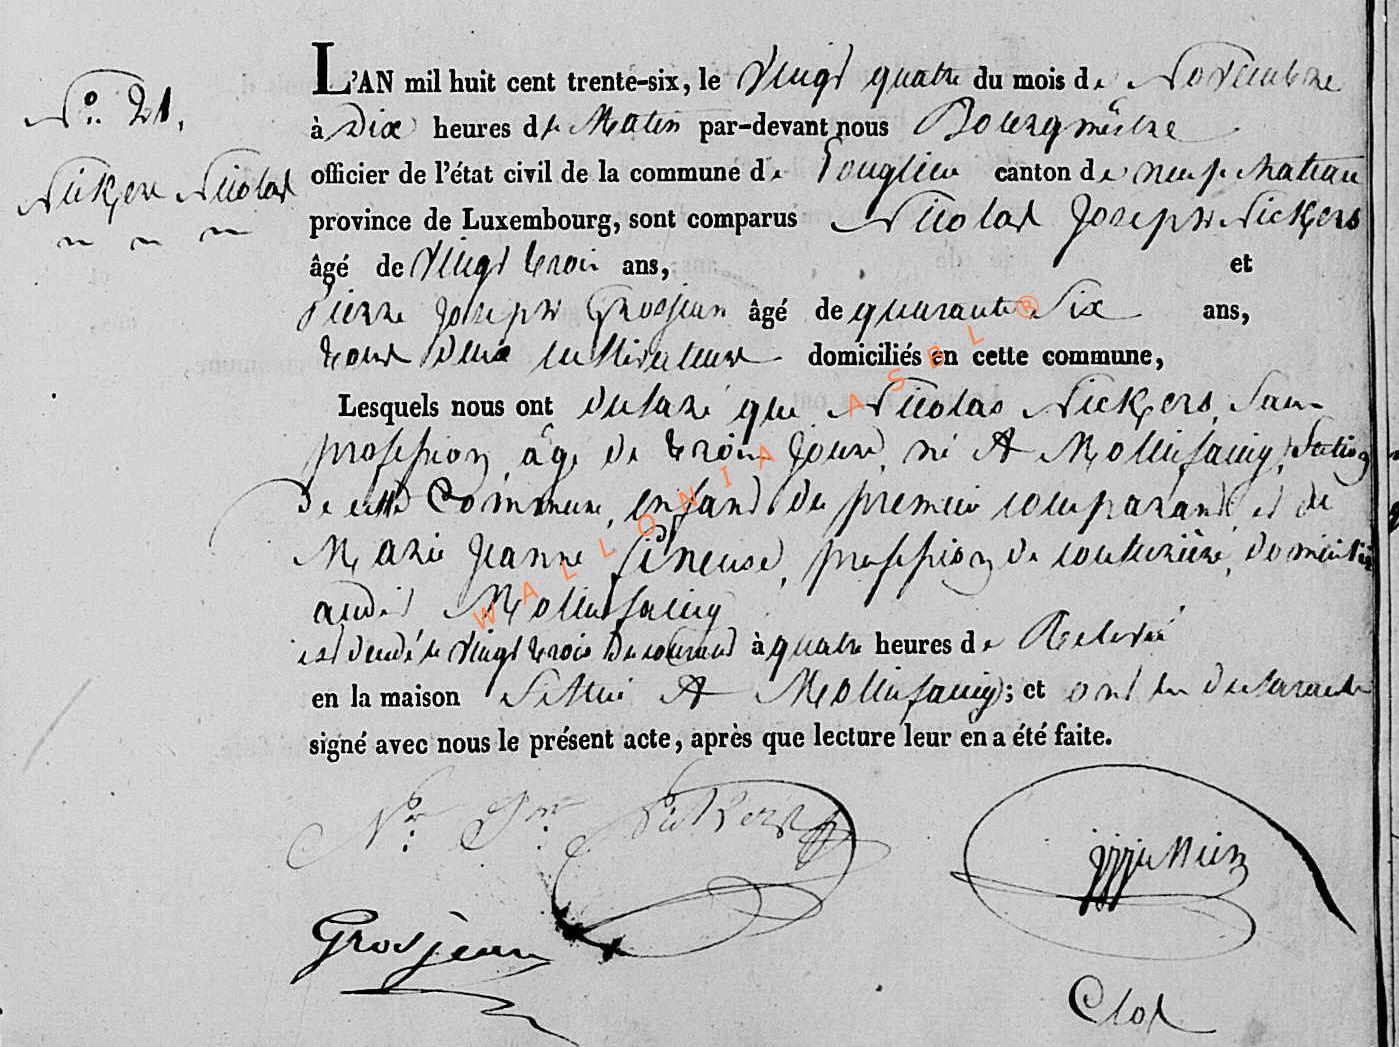 N.° 21.
Nickers Nicolas
L'AN mil huit cent trente-six, le Vingt quatre du mois de Novembre
à Dix heures du Matin par-devant nous Bourgmêstre
officier de l'état civil de la commune de Longlier canton de neufchateau
province de Luxembourg, sont comparus Nicolas Joseph Nickers
âgé de Vingt trois ans, et
Pierre Joseph Grosjean âgé de quarante Six ans,
tous deux cultivateurs domiciliés en cette commune,
Lesquels nous ont déclaré que Nicolas Nickers, Sans
profession, âgé de trois Jours, né A Mollinfaing, Section
de cette Commune, enfant du premier comparant, et de
Marie Jeanne, profession de couturière, domiciliée
audit Mollinfaing
est décédé le Vingt trois du courant à quatre heures de Relevée
en la maison Sittué A Mollinfaing; et ont les déclarants
signé avec nous le présent acte, après que lecture leur en a été faite.
N.as J.ph Nickers
Grosjean
Clos
WALLONIA ASBL ®